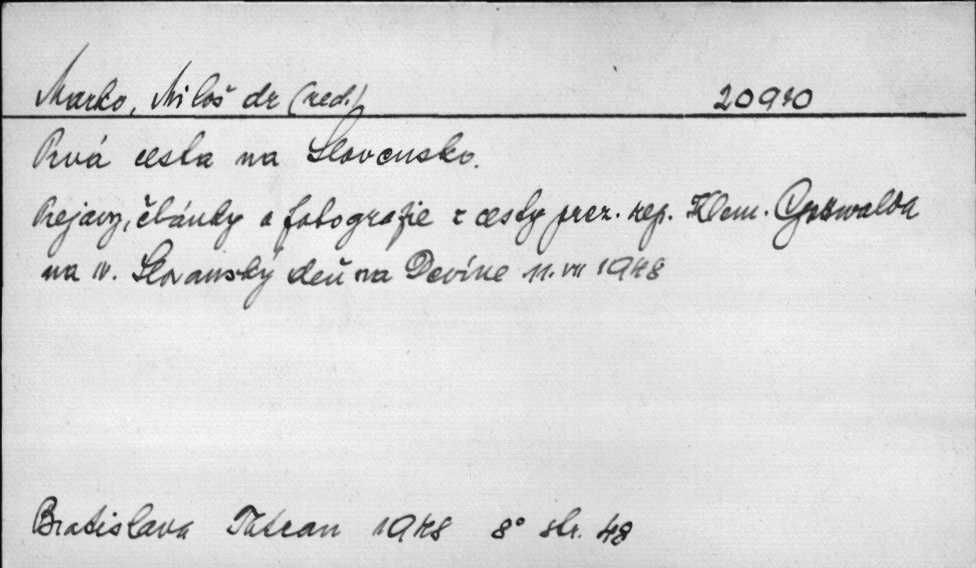 Marko, Miloš dr (red.) 20940
Prvá cesta na Slovensko.
Prejavy, články a fotografie z cesty prez. rep. Klem. Gottwalda
na IV. Slovanský deň na Devíne 11. VII 1948
Bratislava Tatran 1948 8° str. 48